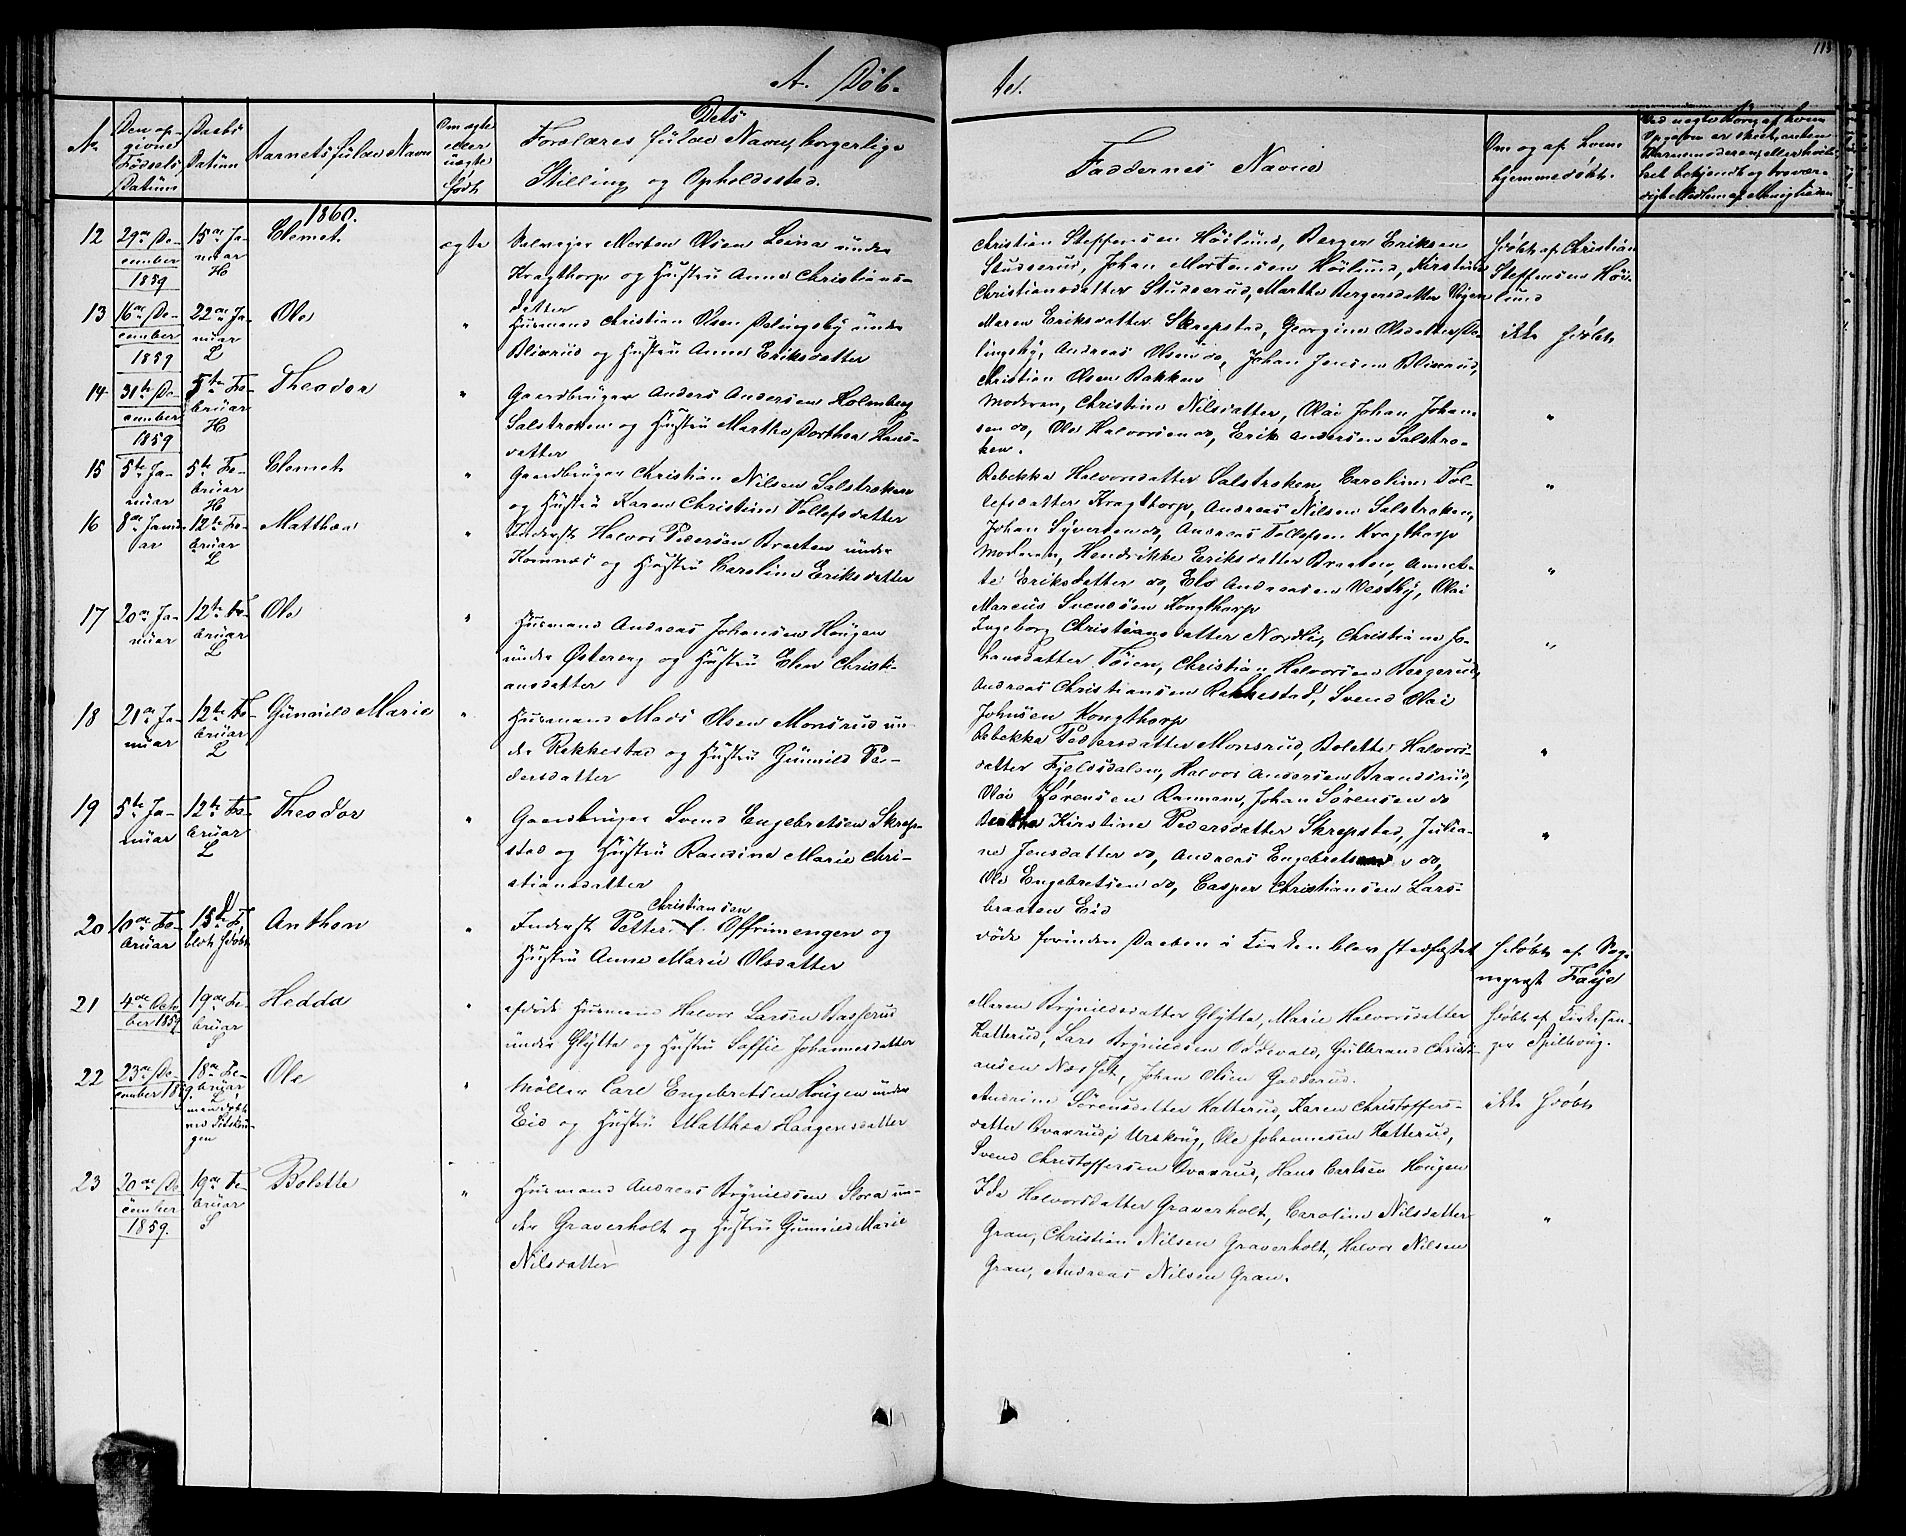 113
A. Döb-
te.
No
Den op-
givne
Fødsels
Datum
Daabs
Datum
Barnets fulde Navn
Om ægte
eller
uægte
født
Dets
Forældres fulde Navne, borgerlige
Stilling og Opholdssted.
Faddernes Navne
Om og af hvem
hjemmedøbt.
1860.
12
29de De-
cember
1859
15de Ja-
nuar
H
Clemet
ægte
Selveier Morten Olsen Leina under
Kragthorp og Hustru Anne Christians-
datter
Christian Steffensen Höilund, Berger Eriksen
Studserud, Johan Mortensen Höilund, Kirstine
Christiansdatter Studserud, Marthe Bergersdatter
hdøbt af Christian
Steffensen Höi-
lund
13
16de De-
cember
1859
22de Ja-
nuar
L
Ole
"
Husmand Christian Olsen Delingsby under
Blixrud og Hustru Anne Eriksdatter
Maren Eriksdatter Skrepstad, Georgine Olsdatter De-
lingsby, Andreas Olsen do, Johan Jensen Blixrud,
Christian Olsen Bakken
ikke hdøbt
14
31te De-
cember
1859
5te Fe-
bruar
H
Theodor
"
Gaardbruger Anders Andersen Holmberg
Salstroken og Hustru Marthe Dorthea Hans-
datter
Moderen, Christine Nilsdatter, Olai Johan Johan-
sen do, Ole Halvorsen do, Erik Andersen Salstro-
ken.
"
15
5te Ja-
nuar
5te Fe-
bruar
H
Clemet
"
Gaardbruger Christian Nilsen Salstroken
og Hustru Karen Christine Tollefsdatter
Rebekka Halvorsdatter Salstroken, Caroline Tol-
lefsdatter Kragthorp, Andreas Nilsen Salstroken,
Johan Syversen do, Andreas Tollefsen Kragthorp
"
16
8de Janu-
ar
12te Fe-
bruar
L
Matthea
"
Inderst Halvor Pedersen Braaten under
Komnæs og Hustru Caroline Eriksdatter
Moderen, Hendrikke Eriksdatter Braaten, Annet-
te Eriksdatter do, Ole Andreassen Vestby, Olai
Marcus Svendsen Kongthorp
"
17
20de Ja-
nuar
12te Fe-
bruar
L
Ole
"
Husmand Andreas Johansen Hougen
under Østereng og Hustru Elen Christi-
ansdatter
Ingeborg Christiansdatter Nordli, Christine Jo-
hansdatter Toien, Christian Halvorsen Bergerud,
Andreas Christiansen Rakkestad, Svend Olai
Johnsen Kongthorp
"
18
21de Ja-
nuar
12te Fe-
bruar
L
Gunnild Marie
"
Husmand Mads Olsen Monsrud un-
der Rakkestad og Hustru Gunnild Pe-
dersdatter
Rebekka Pedersdatter Monsrud, Bolette Halvors-
datter Fjeldsdalen, Halvor Andersen Brandsrud,
Olai Sörensen Rannem, Johan Sörensen do
"
19
5te Ja-
nuar
12te Fe-
bruar
L
Theodor
"
Gaardbruger Svend Engebretsen Skrep-
stad og Hustru Randine Marie Chri-
stiansdatter
Berthe Kirstine Pedersdatter Skrepstad, Julia-
ne Jensdatter do, Andreas Engebretsen do,
Ole Engebretsen do, Casper Christiansen Lars-
braaten Eid
"
20
10de Fe-
bruar
15de F.
blev hdøbt
Anthon
"
Christiansen
Inderst Petter Offrimengen og
Hustru Anne Marie Olsdatter
døde forinden Daaben i Kirken blev stadfæstet
hdøbt af Sog-
nepræst Faye
21
4de Octo-
ber 1859
19de Fe-
bruar
S
Hedda
"
afdøde Husmand Halvor Larsen Basserud
under Glytte og Hustru Saffie Johannesdatter
Maren Brynildsdatter Glytte, Marie Halvorsdatter
Hatterud, Lars Brynildsen Oddevald, Gulbrand Christi-
ansen Næsset, Johan Olsen Gadderud.
hdøbt af Kirkesan-
ger Spilhoug.
22
23de De-
cember 1859.
18de Fe-
bruar
L
men döbt
ved Sitskou-
gen
Ole
"
Møller Carl Engebretsen Hougen under
Eid og Hustru Matthea Haagensdatter
Andrine Sörensdatter Hatterud, Karen Christoffers-
datter Ovaxrud i Urskoug, Ole Johannesen Hatterud,
Svend Christoffersen Ovaxrud, Hans Carlsen Hougen
ikke hdøbt
23
20de De-
cember
1859.
19de Fe-
bruar
S
Bolette
"
Husmand Andreas Brynildsen Mora un-
der Graverholt og Hustru Gunnild Marie
Nilsdatter
Ida Halvorsdatter Graverholt, Caroline Nilsdatter
Gran, Christian Nilsen Graverholt, Halvor Nilsen
Gran, Andreas Nilsen Gran.
"